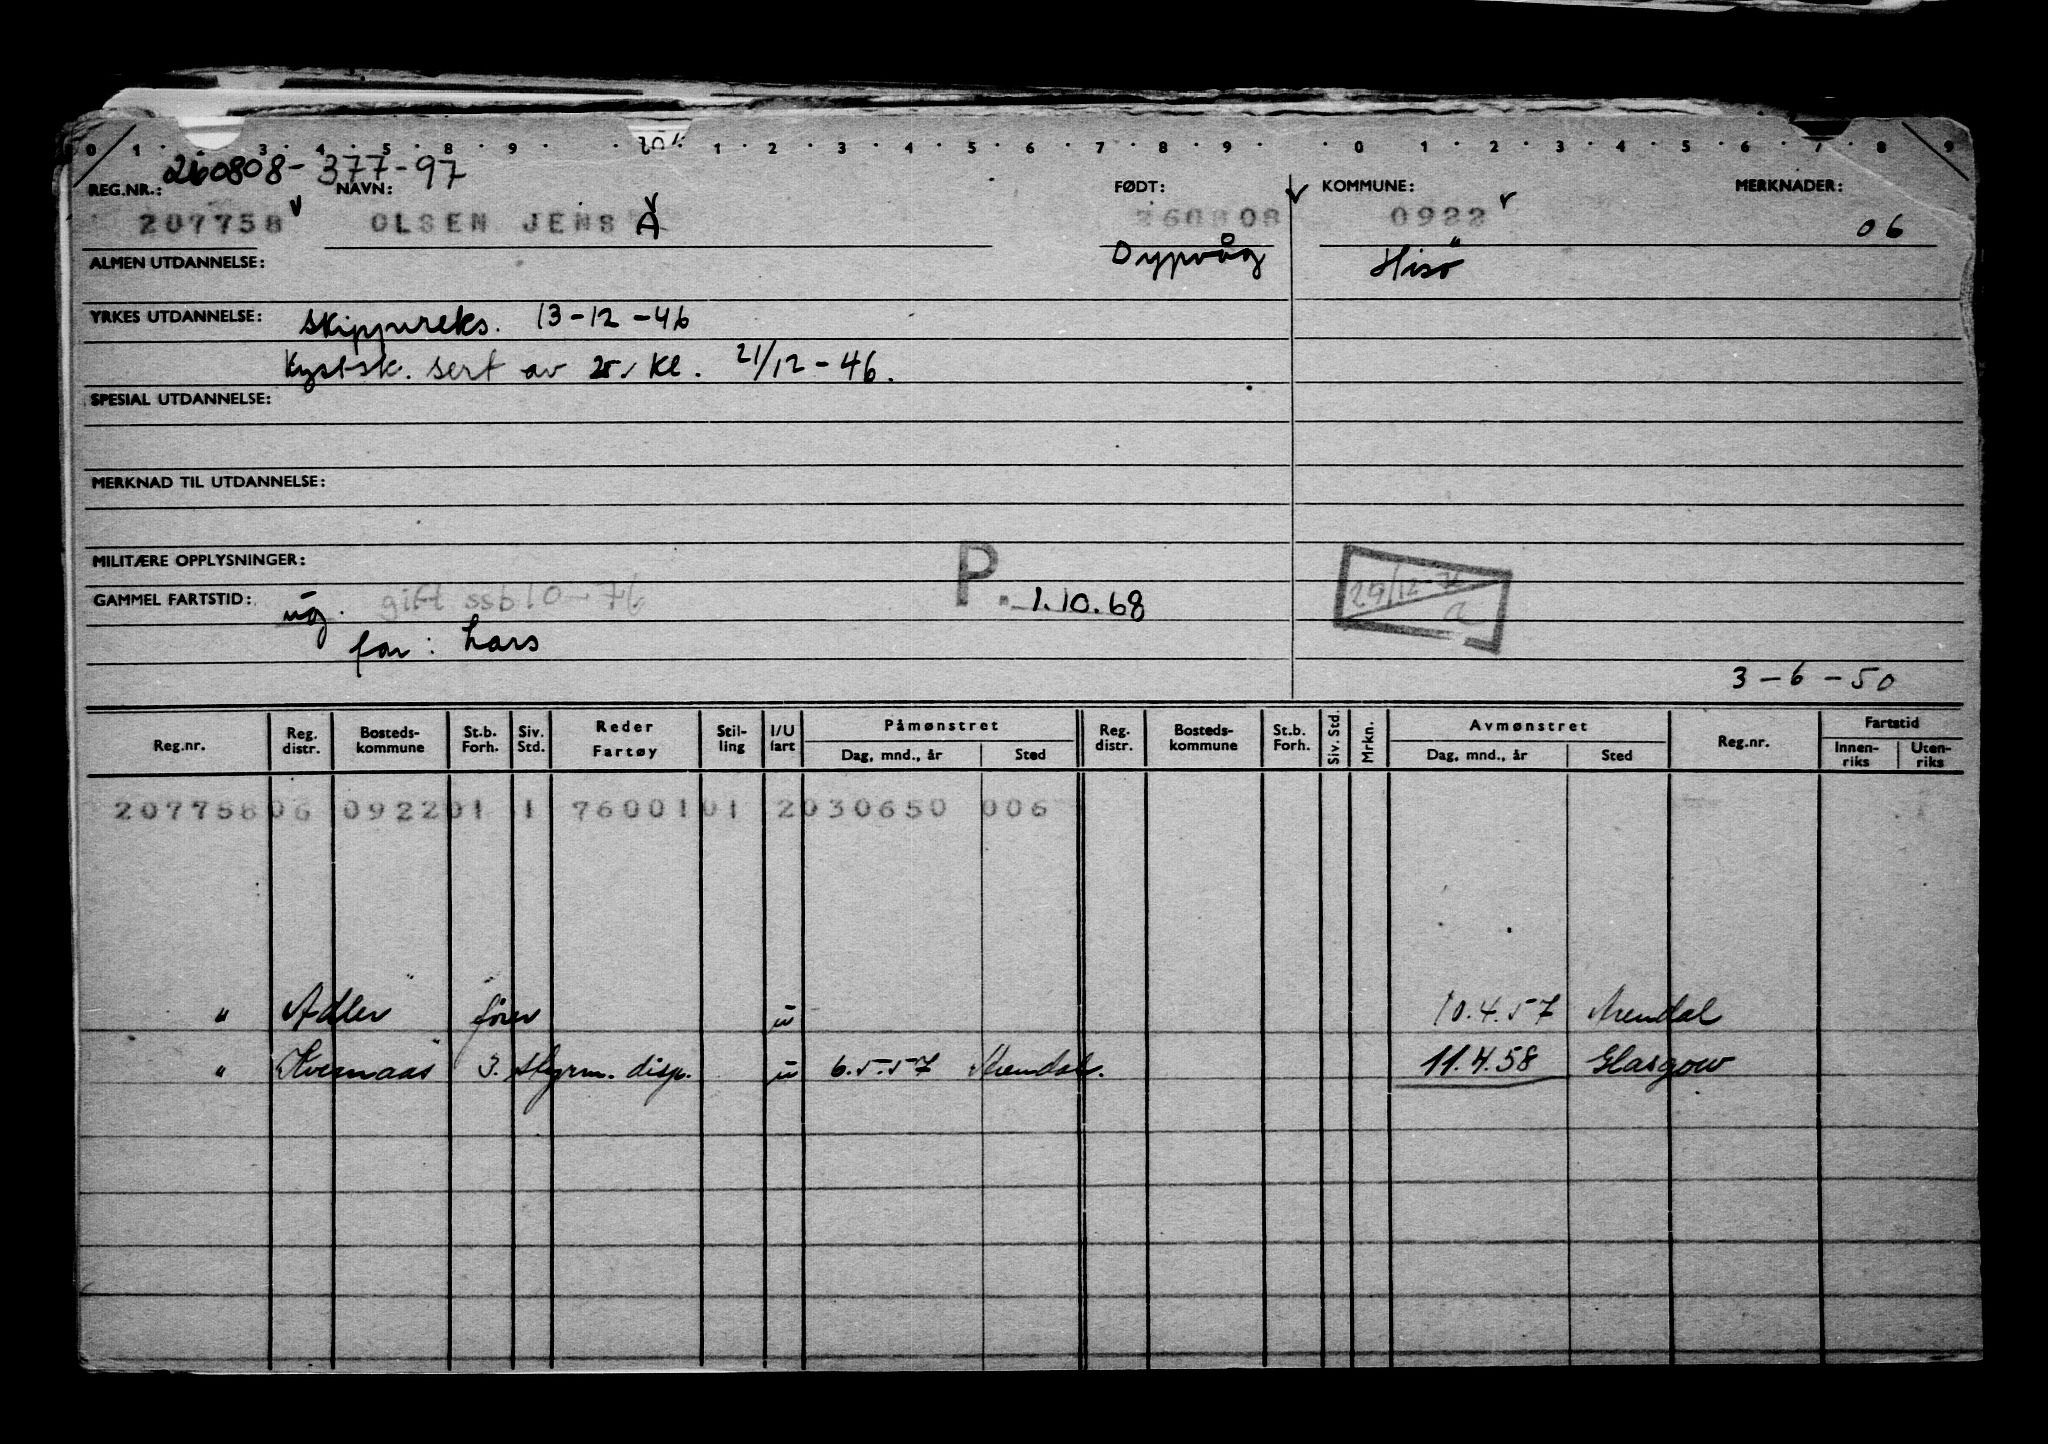 0 1 · · 3 · 4 · 5 · 8 · 9 · · 1 · 2 · 3 · 4 · 5 · 6 · 7 · 8 · 9 · · 0 · 1 · 2 · 3 · 4 · 5 · 6 · 7 · 8 · 9
260808-377-97
REG.NR.: NAVN: FØDT: KOMMUNE: MERKNADER:
207758 OLSEN JENS A 260808 0922 06
ALMEN UTDANNELSE: Dypvåg Hisö
YRKES UTDANNELSE: Skippereks. 13-12-46
Kystsk. sert av 2. kl. 21/12-46.
SPESIAL UTDANNELSE:
MERKNAD TIL UTDANNELSE:
MILITÆRE OPPLYSNINGER:
GAMMEL FARTSTID: ug. gift ssb 10-76 P. 1.10.68 29/12-76
far: Lars
3-6-50
Reg.nr. Reg. distr. Bosteds-kommune St.b. Forh. Siv. Std. Reder Fartøy Stil-ling I/U fart Påmønstret Dag, mnd., år Sted Reg. distr. Bosteds-kommune St.b. Forh. Siv. Std. Mrkn. Avmønstret Dag, mnd., år Sted Reg.nr. Fartstid Innen-riks Uten-riks
207758 06 0922 01 1 76001 01 2 030650 006
" Adler" fører u 10.4.57 Arendal
" Kvernaas" 3. styrm. disp. u 6.5.57 Arendal. 11.4.58 Glasgow